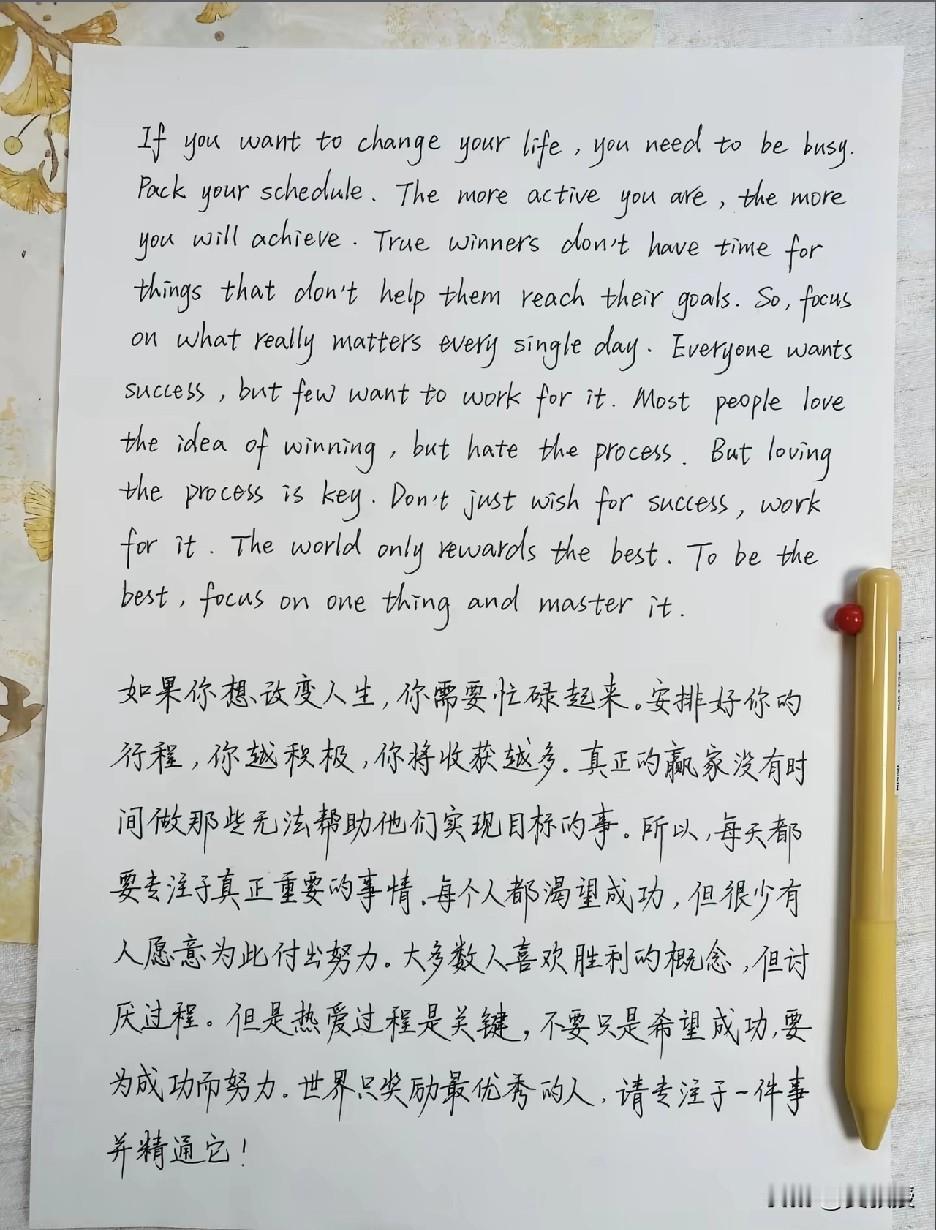 If you want to change your life, you need to be busy.
Pack your schedule. The more active you are, the more
you will achieve. True winners don't have time for
things that don't help them reach their goals. So, focus
on what really matters every single day. Everyone wants
success, but few want to work for it. Most people love
the idea of winning, but hate the process. But loving
the process is key. Don't just wish for success, work
for it. The world only rewards the best. To be the
best, focus on one thing and master it.
如果你想改变人生,你需要忙碌起来。安排好你的
行程,你越积极,你将收获越多.真正的赢家没有时
间做那些无法帮助他们实现目标的事。所以,每天都
要专注于真正重要的事情.每个人都渴望成功,但很少有
人愿意为此付出努力。大多数人喜欢胜利的概念,但讨
厌过程。但是热爱过程是关键,不要只是希望成功,要
为成功而努力.世界只奖励最优秀的人,请专注于一件事
并精通它!